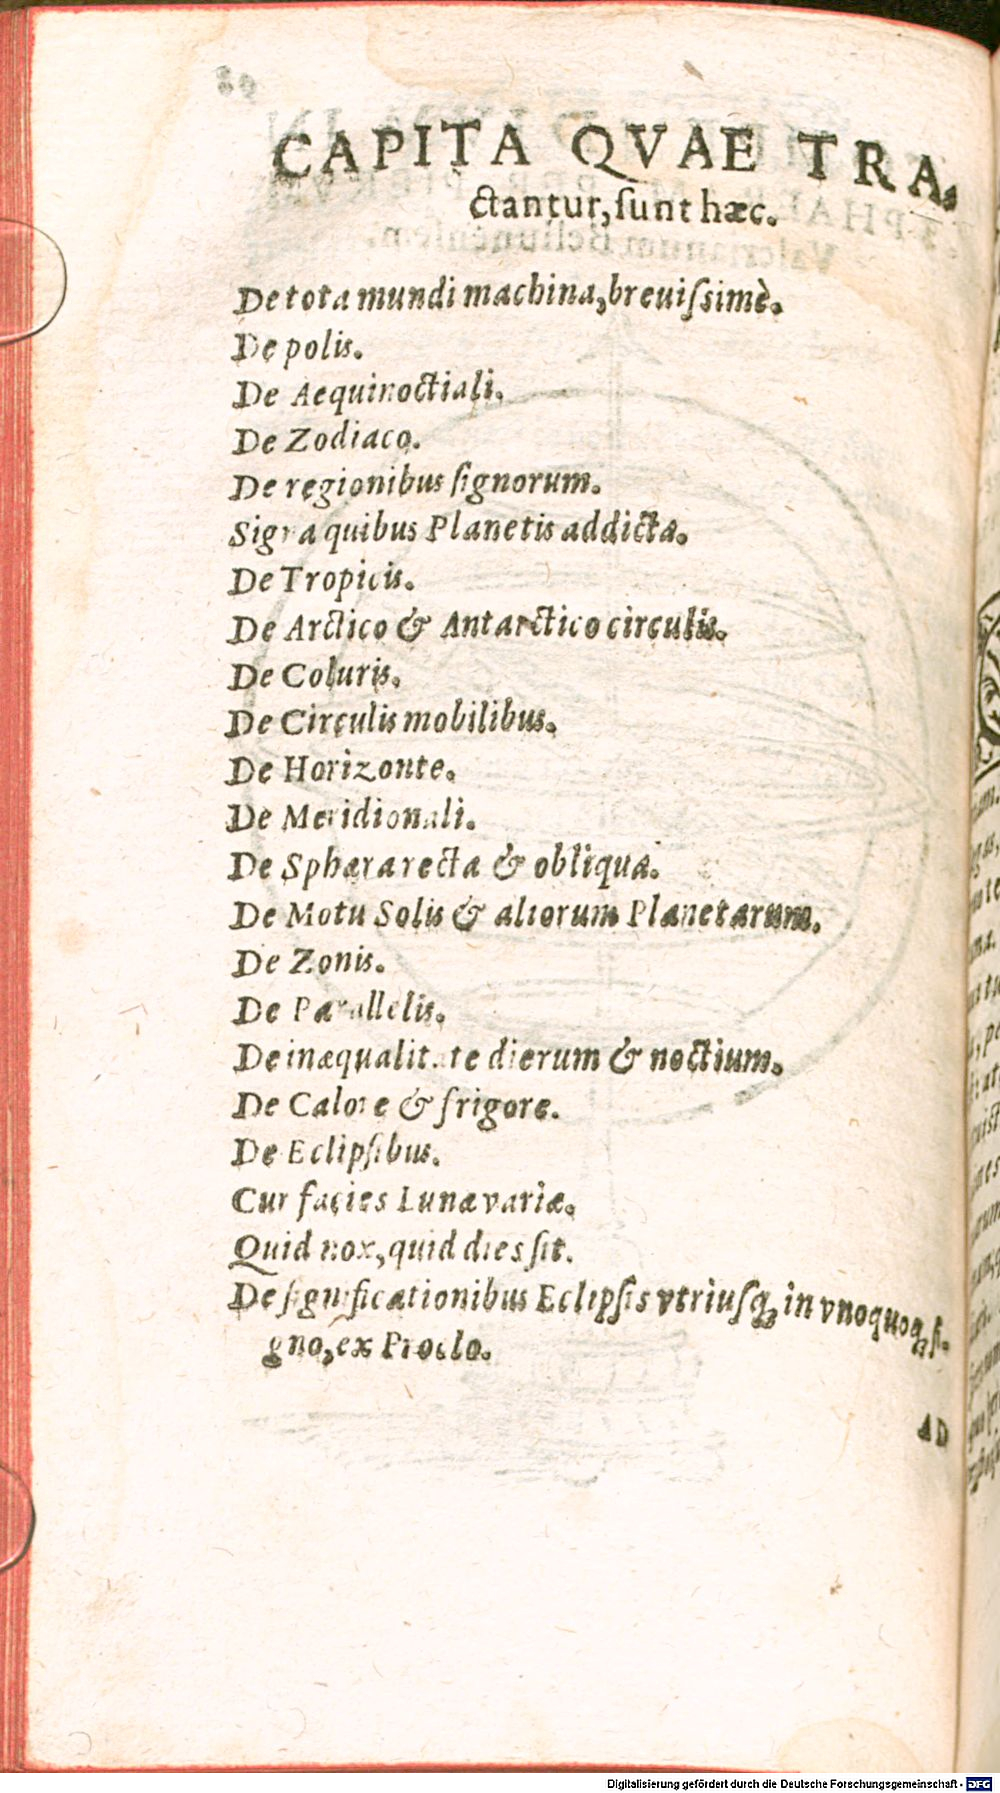 CAPITA QVAE TRA-
ctantur, ſunt hæc.
De tota mundi machina, breuiſsimè.
De polis.
De Aequinoctiali.
De Zodiaco.
De regionibus ſignorum.
Signa quibus Planetis addicta.
De Tropicis.
De Arctico & Antarctico circulis.
De Coluris.
De Circulis mobilibus.
De Horizonte.
De Meridionali.
De Sphæra recta & obliqua.
De Motu Solis & aliorum Planetarum.
De Zonis.
De Parallelis.
De inæqualitate dierum & noctium.
De Calore & frigore.
De Eclipſibus.
Cur facies Lunæ variæ.
Quid nox, quid dies ſit.
De ſignificationibus Eclipſis vtriuſq; in vnoquoq; ſi-
gno, ex Proclo.
AD
Digitalisierung gefördert durch die Deutsche Forschungsgemeinschaft - DFG